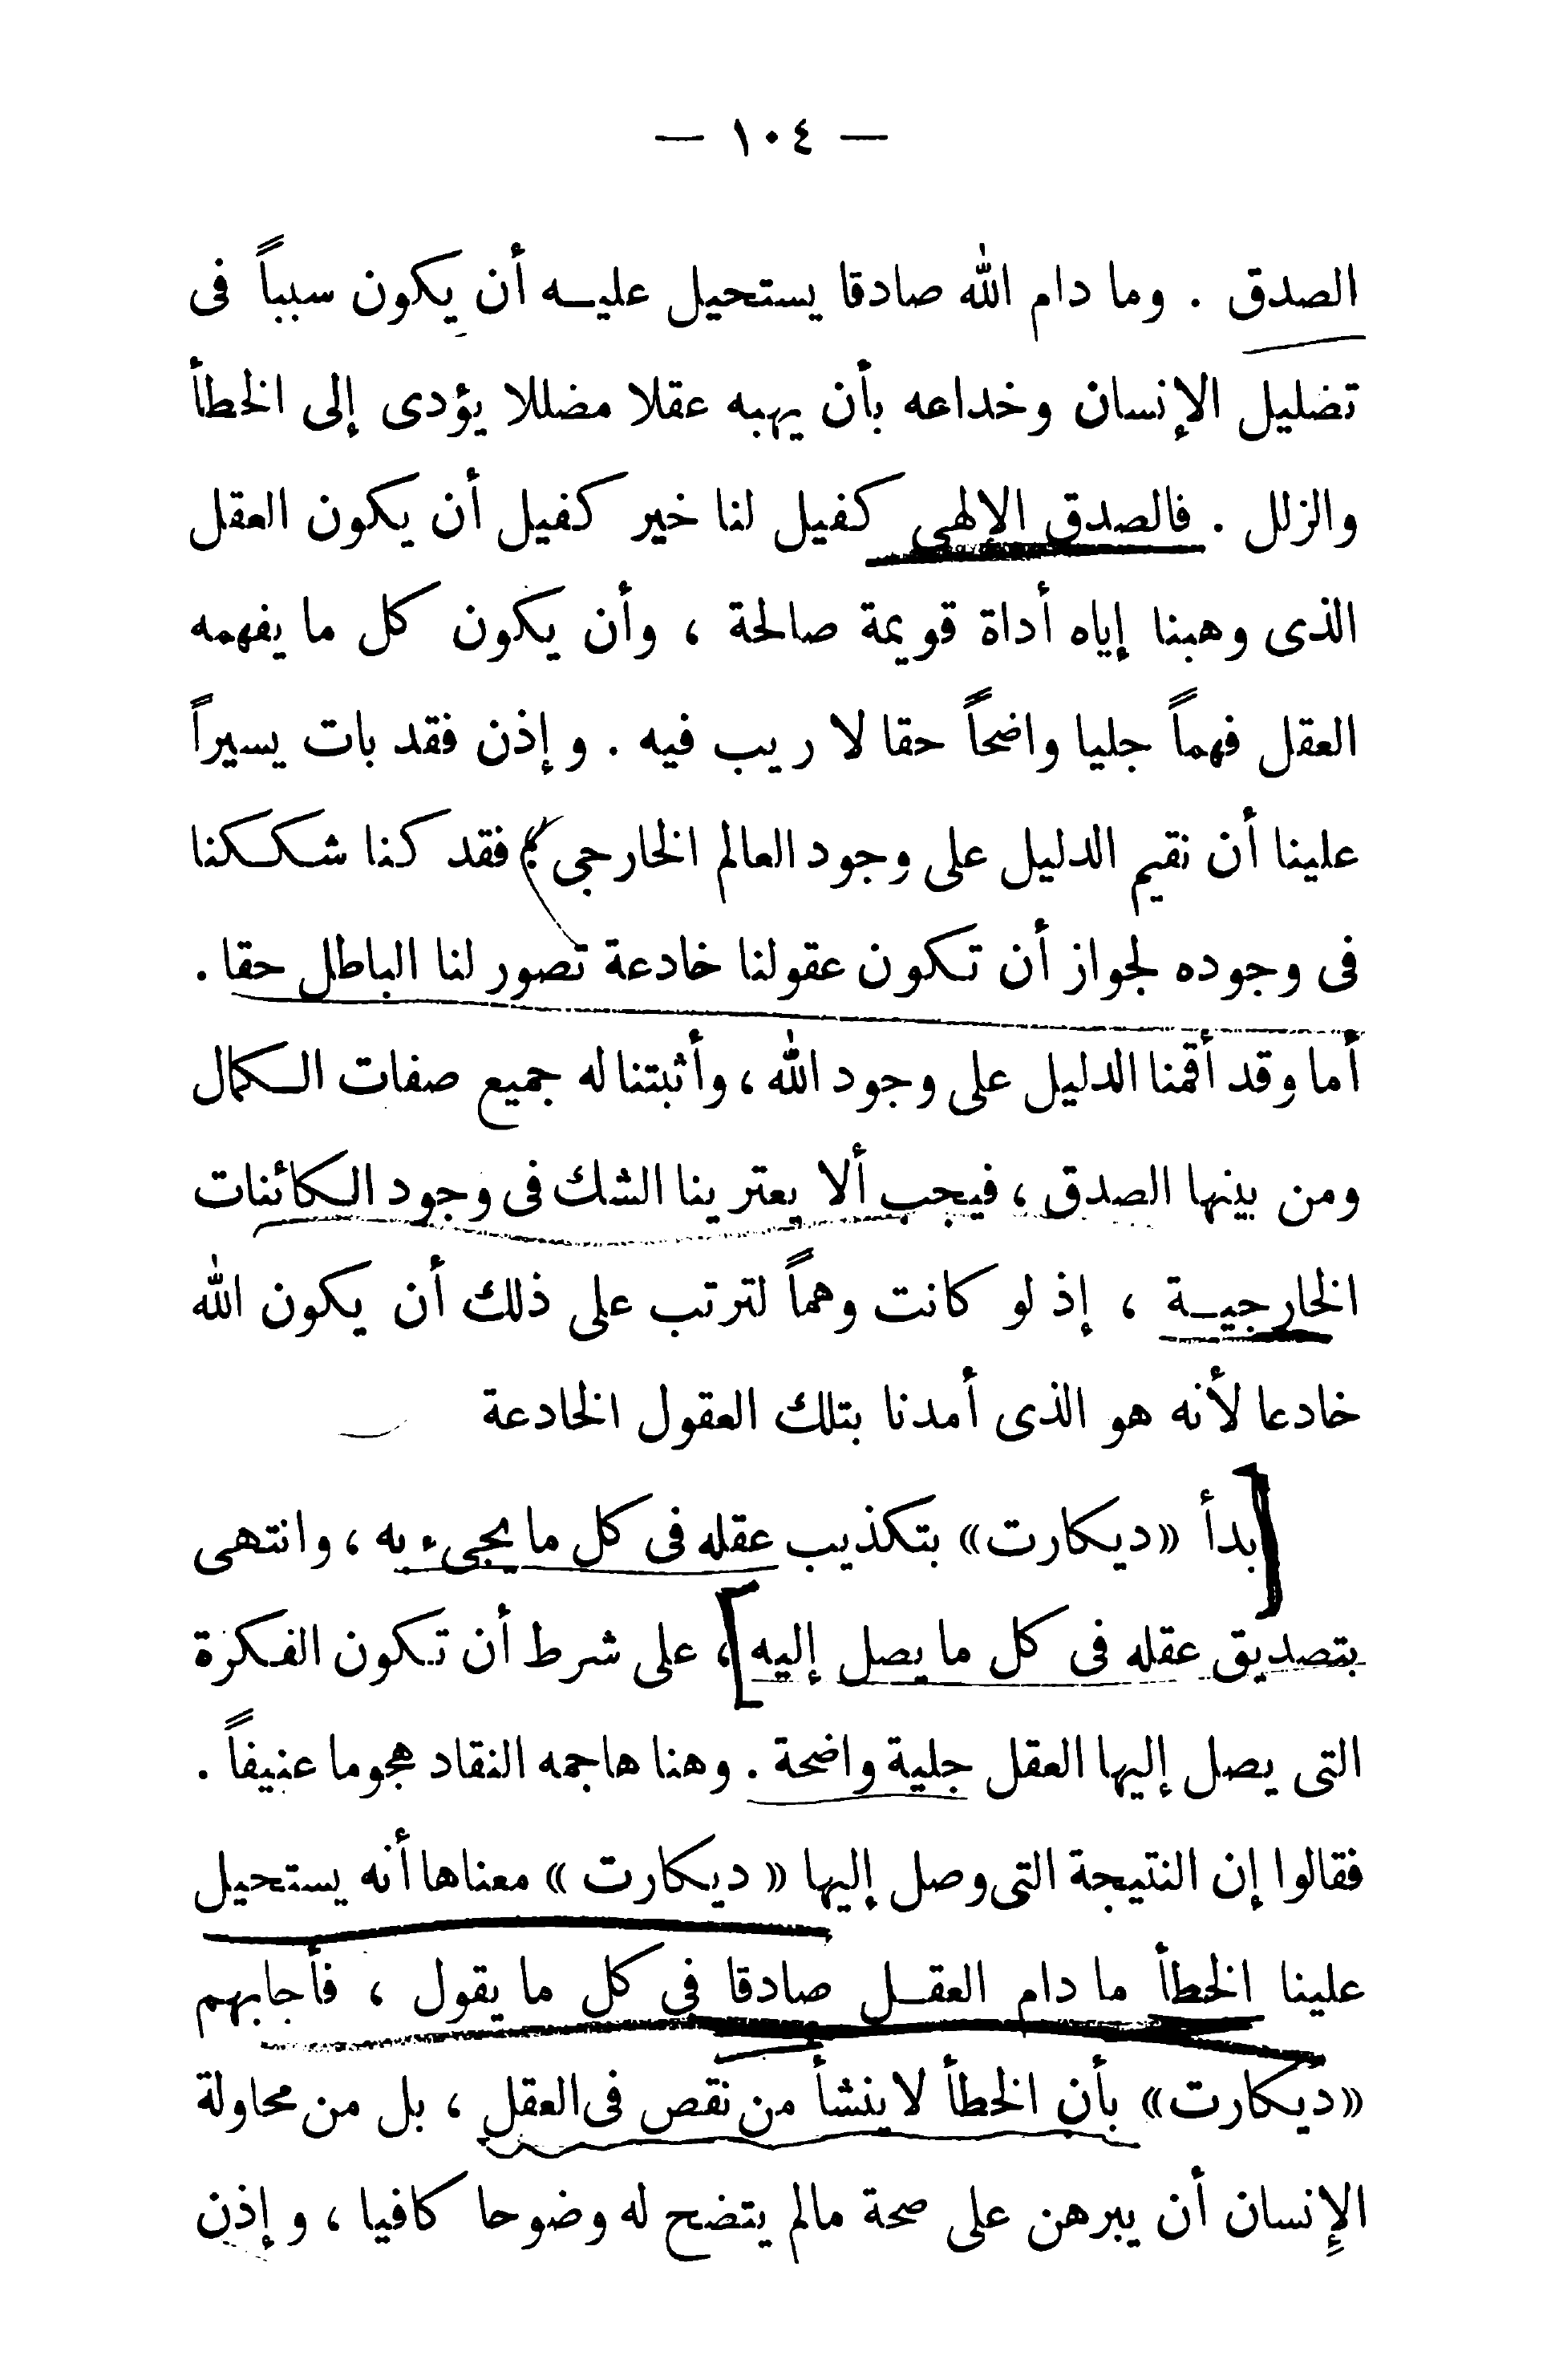 — ١٠٤ —
الصدق . وما دام الله صادقا يستحيل عليـه أن يكون سبباً فى
تضليل الإنسان وخداعه بأن يهبه عقلا مضللا يؤدى إلى الخطأ
والزلل . فالصدق الإلهى كفيل لنا خير كفيل أن يكون العقل
الذى وهبنا إياه أداة قويمة صالحة ، وأن يكون كل ما يفهمه
العقل فهماً جليا واضحاً حقا لا ريب فيه . وإذن فقد بات يسيراً
علينا أن نقيم الدليل على وجود العالم الخارجى ؛ فقد كنا شككنا
فى وجوده لجواز أن تكون عقولنا خادعة تصور لنا الباطل حقا .
أما وقد أقمنا الدليل على وجود الله ، وأثبتنا له جميع صفات الكمال
ومن بينها الصدق ، فيجب ألا يعترينا الشك فى وجود الكائنات
الخارجيـة ، إذ لو كانت وهماً لترتب على ذلك أن يكون الله
خادعا لأنه هو الذى أمدنا بتلك العقول الخادعة
[بدأ «ديكارت» بتكذيب عقله فى كل ما يجىء به ، وانتهى
بتصديق عقله فى كل ما يصل إليه]، على شرط أن تكون الفكرة
التى يصل إليها العقل جلية واضحة . وهنا هاجمه النقاد هجوما عنيفاً .
فقالوا إن النتيجة التى وصل إليها « ديكارت » معناها أنه يستحيل
علينا الخطأ ما دام العقـل صادقا فى كل ما يقول ، فأجابهم
«ديكارت» بأن الخطأ لا ينشأ من نقص فى العقل ، بل من محاولة
الإنسان أن يبرهن على صحة مالم يتضح له وضوحا كافيا ، وإذن